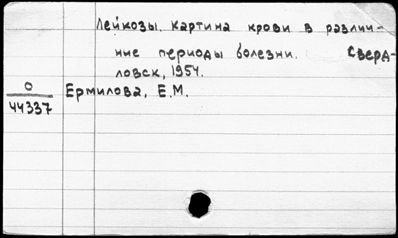 Лейкозы. Картина крови в различ-
ные периоды болезни. Сверд-
ловск, 1954.
О Ермилова, Е.М.
44337